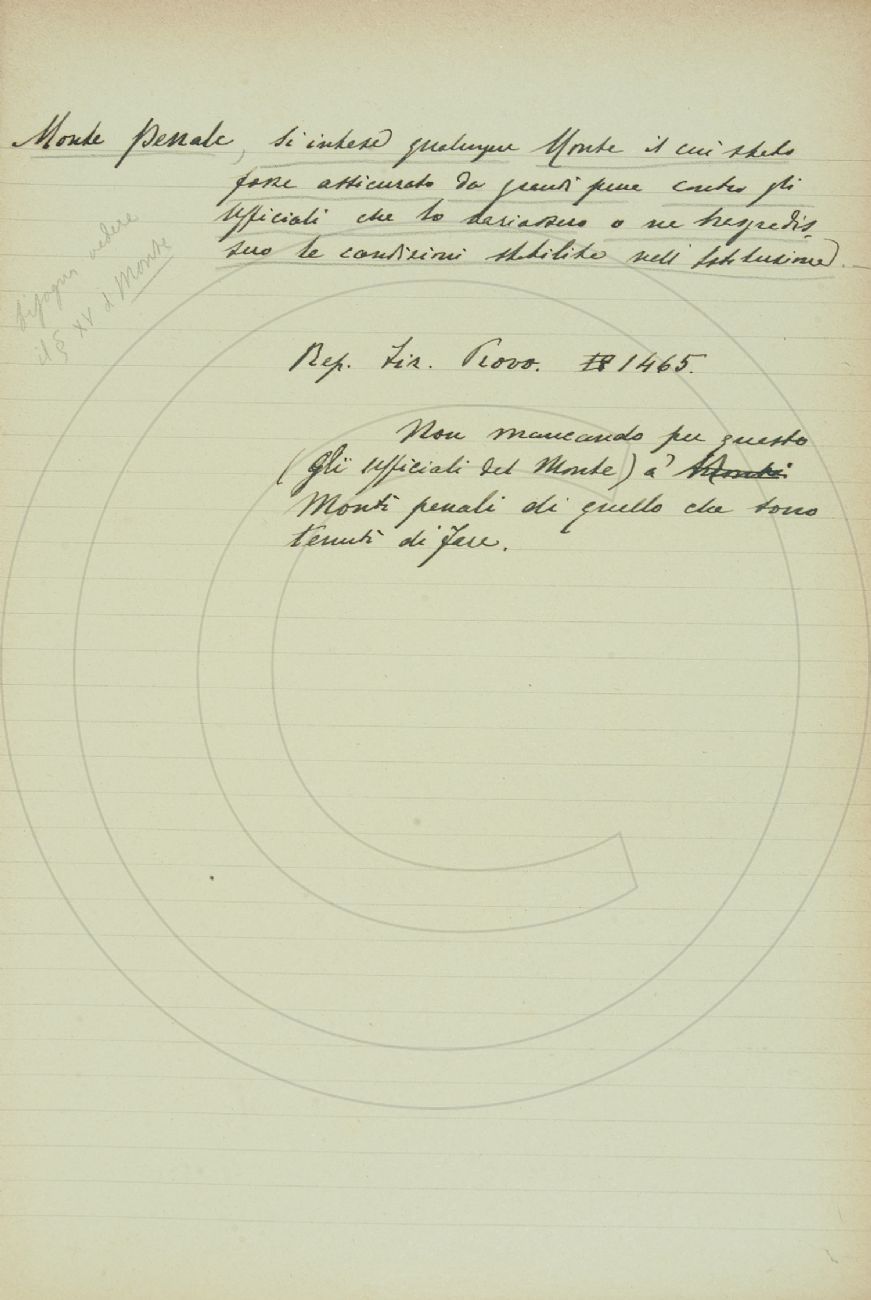 Monte Penale, si intese qualunque Monte il cui stato
fosse assicurato da grandi pene contro gli
Ufficiali che lo variassero o ne trasgredis
sero le condizioni stabilite nell' Istituzione.
bisogna vedere
il § XV di Monte
Rep. Fir. Provo. 1465.
Non mancando per questo
(Gli Ufficiali del Monte) a'
Monti penali di quello che sono
tenuti di fare.